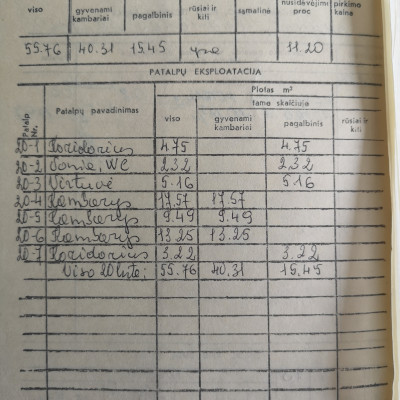 viso gyvenami kambariai pagalbinis rūsiai ir kiti sąmatinė nusidėvėjimo proc pirkimo kaina
55.76 40.31 15.45 yra 11.20
PATALPŲ EKSPLOATACIJA
Patalp. Nr. Patalpų pavadinimas Plotas m²
viso tame skaičiuje rūsiai ir kiti
gyvenami kambariai pagalbinis
20-1 Koridorius 4.75 4.75
20-2 Vonia, WC 2.32 2.32
20-3 Virtuvė 5.16 5.16
20-4 Kambarys 17.57 17.57
20-5 Kambarys 9.49 9.49
20-6 Kambarys 13.25 13.25
20-7 Koridorius 3.22 3.22
Viso 20 bute: 55.76 40.31 15.45